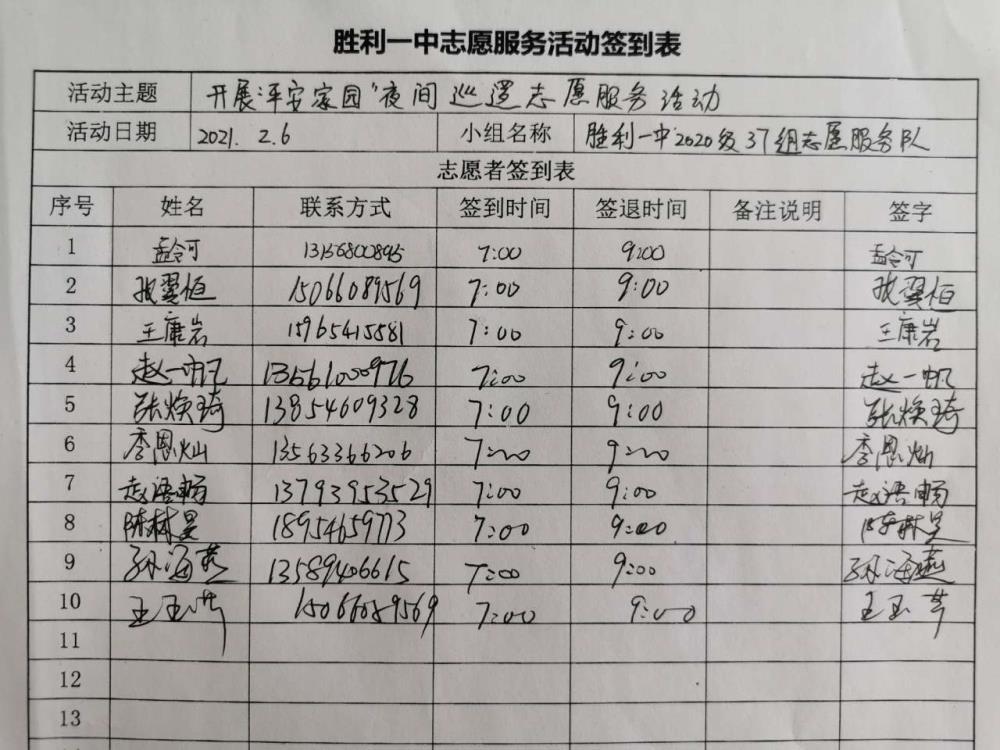 胜利一中志愿服务活动签到表
活动主题 开展"平安家园"夜间巡逻志愿服务活动
活动日期 2021. 2.6 小组名称 胜利一中2020级37组志愿服务队
志愿者签到表
序号 姓名 联系方式 签到时间 签退时间 备注说明 签字
1 孟令可 13156800895 7:00 9:00 孟令可
2 张翼恒 15066089569 7:00 9:00 张翼恒
3 王康岩 15965415581 7:00 9:00 王康岩
4 赵一帆 13561000976 7:00 9:00 赵一帆
5 张焕琦 13854609328 7:00 9:00 张焕琦
6 李恩灿 13563366206 7:00 9:00 李恩灿
7 赵浯畅 13793953529 7:00 9:00 赵浯畅
8 陈林昊 18954659773 7:00 9:00 陈林昊
9 孙海燕 13589406615 7:00 9:00 孙海燕
10 王玉芹 15066089569 7:00 9:00 王玉芹
11
12
13